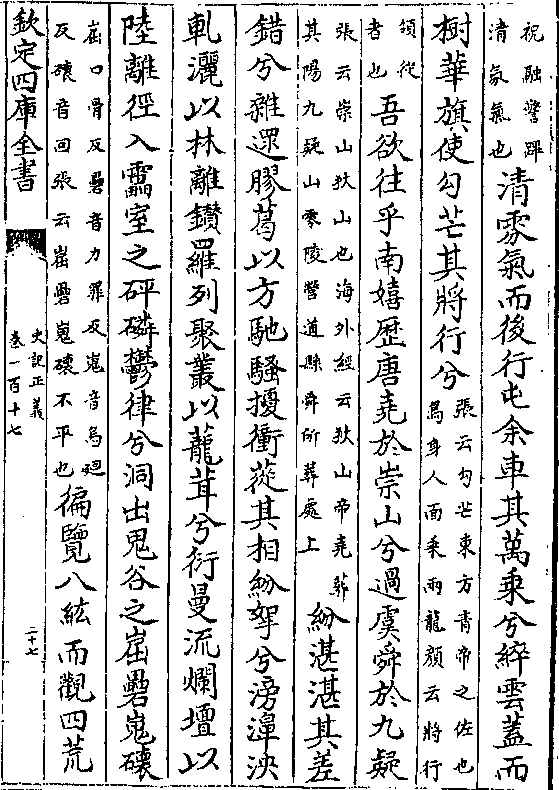 祝融警蹕
清氛氣也
清雰氣而後行屯余車其萬乘兮綷雲蓋而
樹華旗使勾芒其將行兮
張云勾芒東方青帝之佐也
鳥身人面乗兩龍顔云將行
領從
者也
吾欲往乎南嬉歴唐堯於崇山兮過虞舜於九疑
張云崇山狄山也海外經云狄山帝堯葬
其陽九疑山零陵營道縣舜所葬處上
紛湛湛其差
錯兮雜遝膠葛以方馳騷擾衝蓯其相紛挐兮滂濞泱
軋灑以林離鑚羅列聚叢以蘢茸兮衍曼流爛壇以
陸離徑入靁室之砰磷鬱律兮洞出鬼谷之崫礨嵬磈
崫口骨反礨音力罪反嵬音烏廻
反磈音回張云崫礨嵬磈不平也
徧覽八紘而觀四荒
欽定四庫全書
史記正義
卷一百十七
二十七